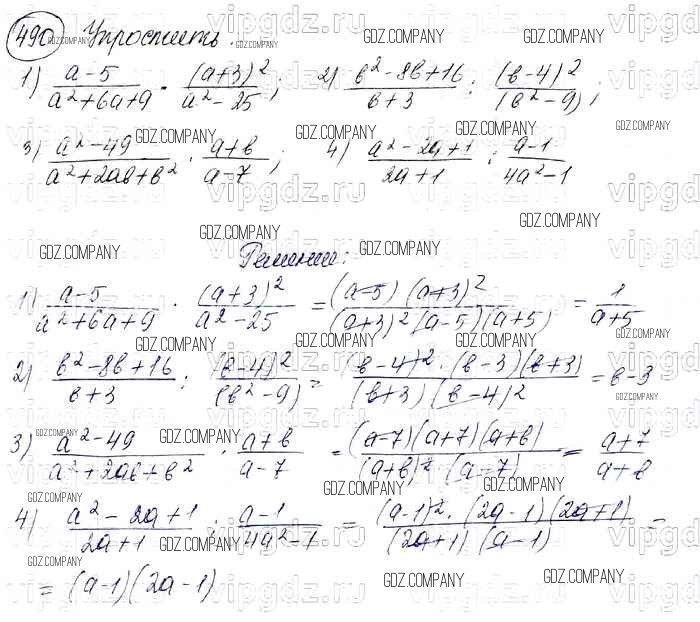 490 Упростить.
1) (a-5)/(a²+6a+9) · (a+3)²/(a²-25); 2) (в²-8в+16)/(в+3) : (в-4)²/(в²-9);
3) (a²-49)/(a²+2aв+в²) · (a+в)/(a-7); 4) (a²-2a+1)/(2a+1) : (a-1)/(4a²-1)
Решение:
1) (a-5)/(a²+6a+9) · (a+3)²/(a²-25) = (a-5)(a+3)²/((a+3)²(a-5)(a+5)) = 1/(a+5)
2) (в²-8в+16)/(в+3) : (в-4)²/(в²-9) = (в-4)²·(в-3)(в+3)/((в+3)(в-4)²) = в-3
3) (a²-49)/(a²+2aв+в²) · (a+в)/(a-7) = (a-7)(a+7)(a+в)/((a+в)²(a-7)) = (a+7)/(a+в)
4) (a²-2a+1)/(2a+1) : (a-1)/(4a²-1) = (a-1)²·(2a-1)(2a+1)/((2a+1)(a-1)) =
= (a-1)(2a-1)
GDZ.COMPANY
vipgdz.ru